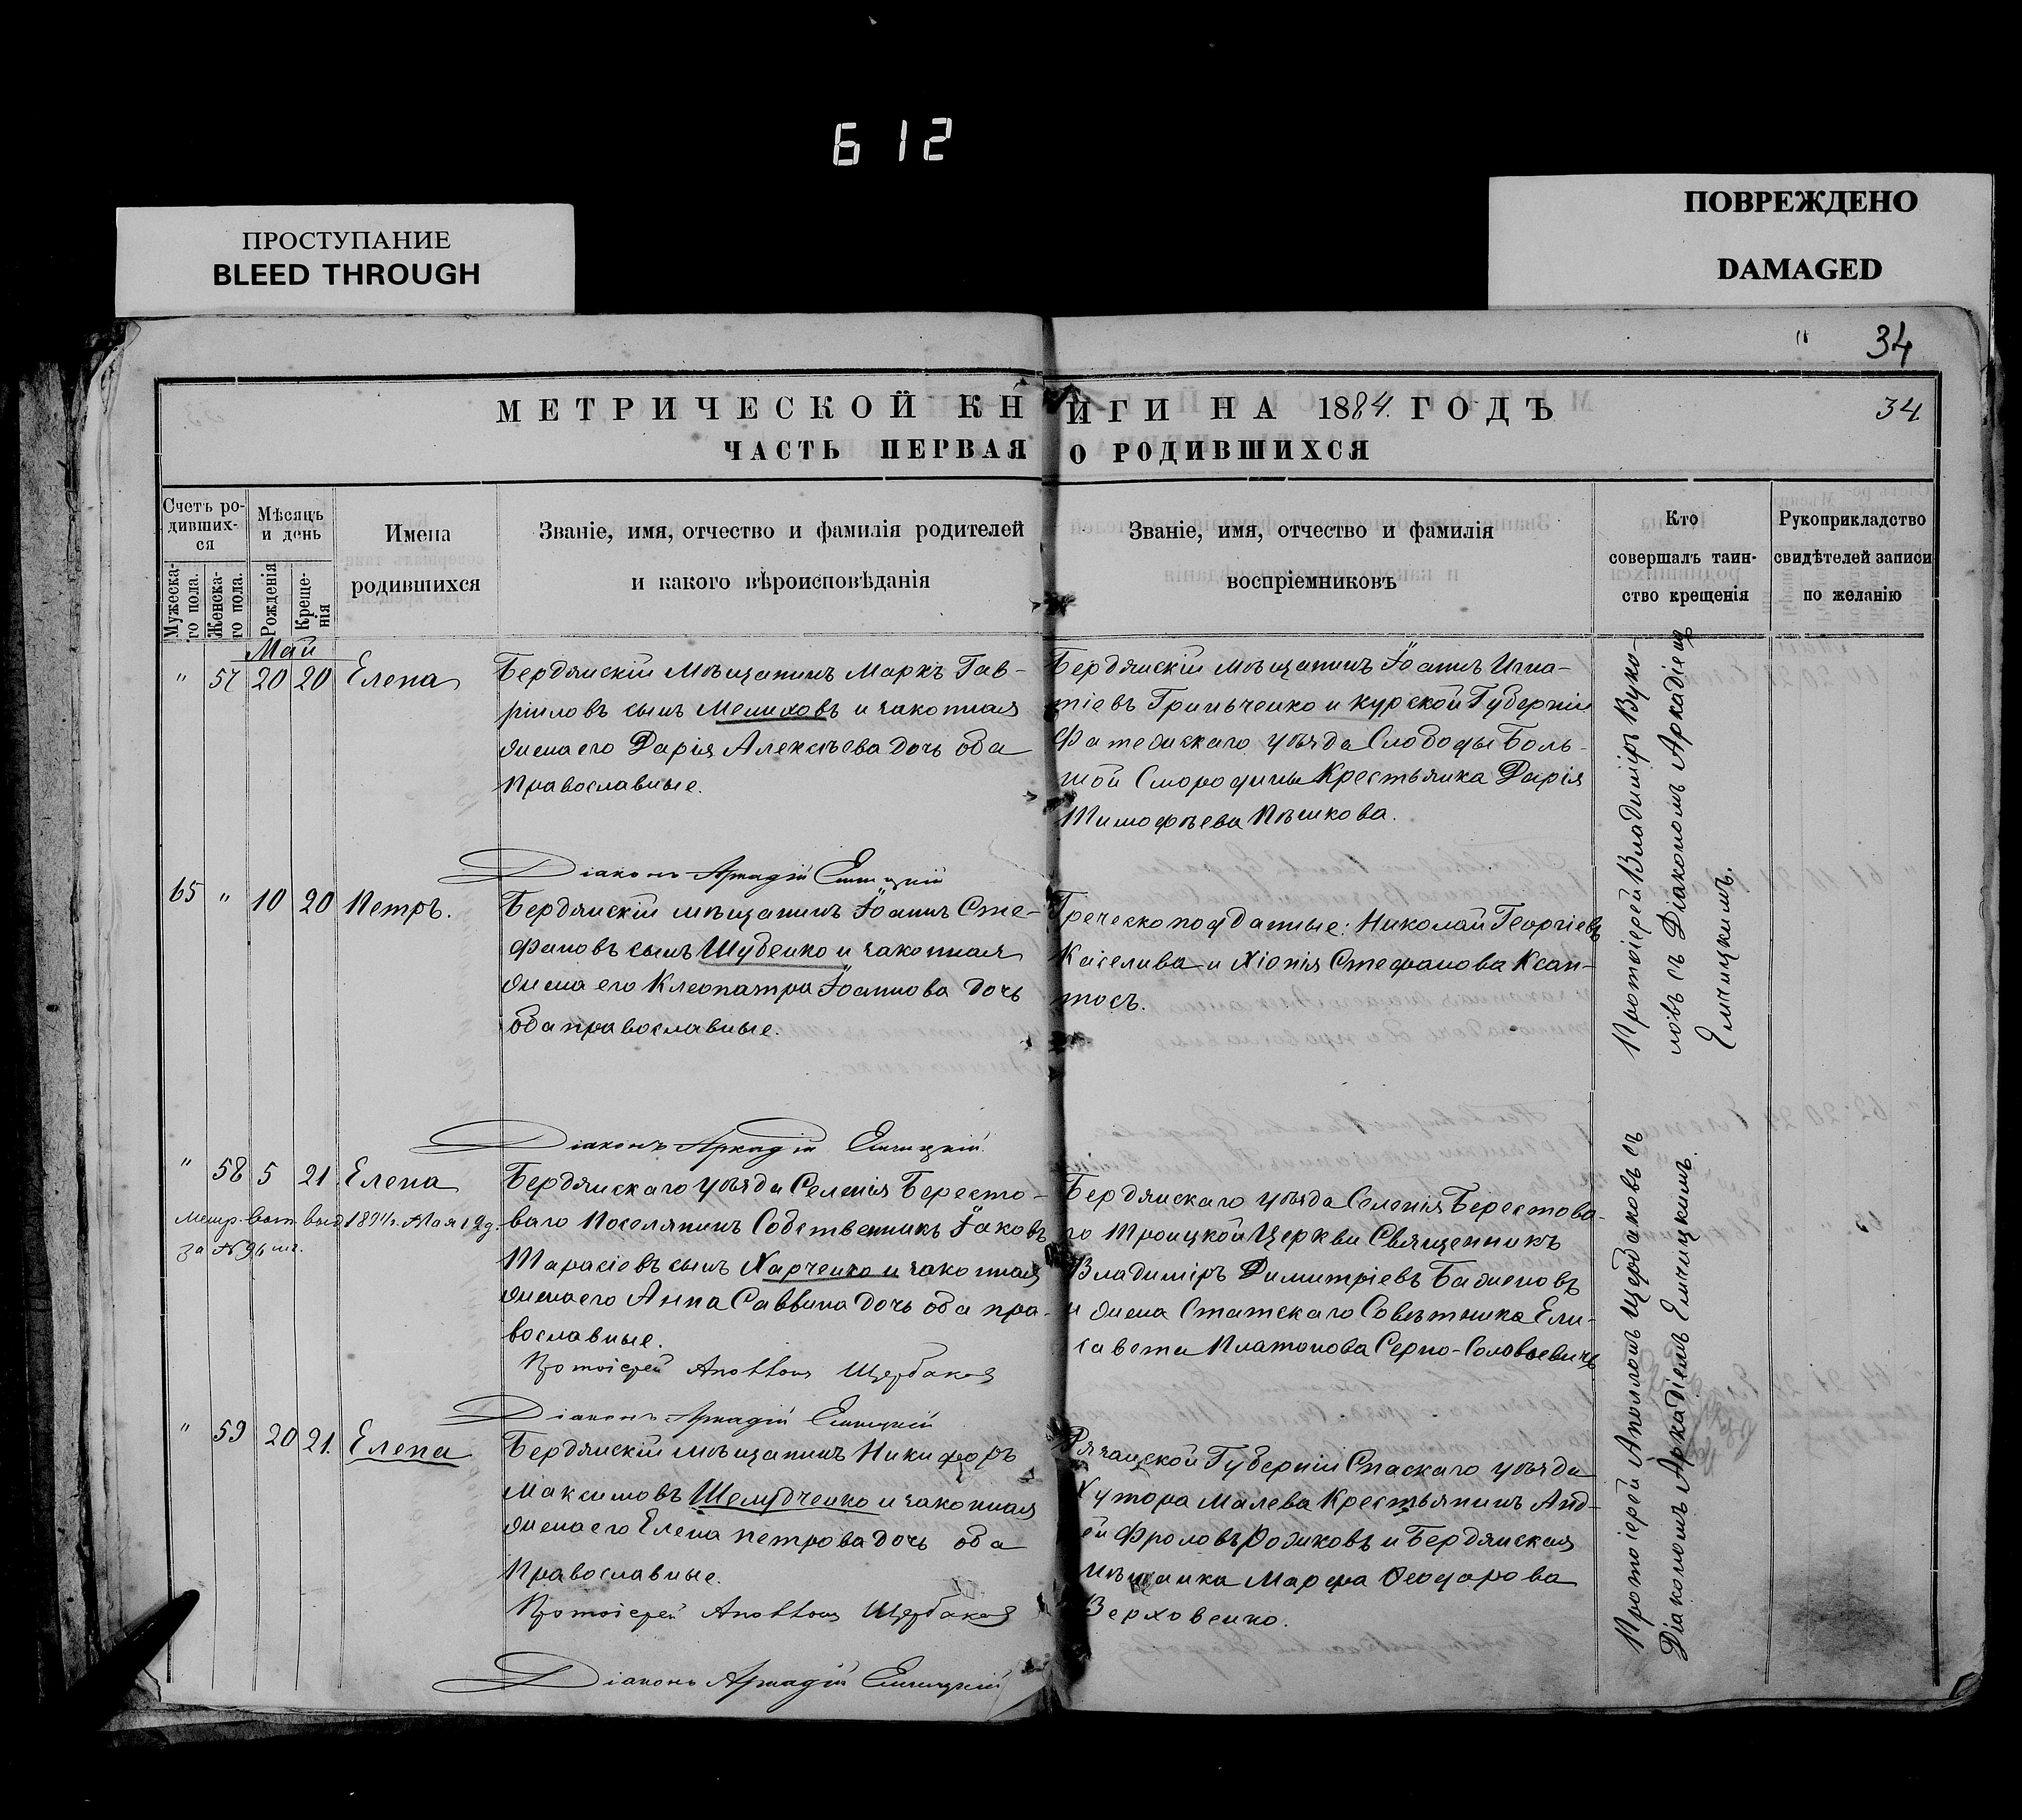 612
ПРОСТУПАНИЕ
BLEED THROUGH
ПОВРЕЖДЕНО
DAMAGED
34
МЕТРИЧЕСКОЙ КНИГИ НА 1884. ГОДЪ
34
ЧАСТЬ ПЕРВАЯ О РОДИВШИХСЯ
Счетъ ро-
дивших-
ся
Мужеска-
го пола.
Женска-
го пола.
Мѣсяцъ
и день
Рожденія
Креще-
нія
Имена
родившихся
Званіе, имя, отчество и фамилія родителей
и какого вѣроисповѣданія
Званіе, имя, отчество и фамилія
воспріемниковъ
Кто
совершалъ таин-
ство крещенія
Рукоприкладство
свидѣтелей записи
по желанію
Май
" 57 20 20 Елена
Бердянскій Мѣщанинъ Маркъ Гав-
ріиловъ сынъ Мелиховъ и законная
жена его Дарія Алексѣева дочь оба
Православные.
Бердянскій мѣщанинъ Іоаннъ Игна-
тіевъ Гриньченко и Курской Губерніи
Фатежскаго уѣзда Слободы Боль-
шой Смородины Крестьянка Дарія
Тимофѣева Пѣшкова.
Діаконъ Аркадій Емицкій
65 " 10 20 Петръ.
Бердянскій мѣщанинъ Іоаннъ Сте-
фановъ сынъ Шубенко и законная
жена его Клеопатра Іоаннова дочь
оба православные.
Греческоподданные: Николай Георгіевъ
и Хіонія Стефанова Ксан-
тосъ.
Протоіерей Владиміръ Вуко-
ловъ съ Діакономъ Аркадіемъ
Діаконъ Аркадій
" 58 5 21 Елена
Метр. вып. выд. 1894 г. Мая 12 д.
за № 96 шт.
Бердянскаго уѣзда Селенія Бересто-
ваго Поселянинъ Собственникъ Іаковъ
Тарасіевъ сынъ Харченко и законная
жена его Анна Саввина дочь оба пра-
вославные.
Бердянскаго уѣзда Селенія Берестова-
го Троицкой Церкви Священникъ
Владиміръ Димитріевъ Баженовъ
и жена Статскаго Совѣтника Ели-
савета Платонова Серно-Соловьевичъ
Протоіерей Аполлонъ Щербаковъ
Діаконъ Аркадій
" 59 20 21. Елена
Бердянскій мѣщанинъ Никифоръ
Максимовъ Шелудченко и законная
жена его Елена Петрова дочь оба
Православные.
Рязанской Губерніи Спаскаго уѣзда
Хутора Малева Крестьянинъ Анд-
ей Фроловъ Родиковъ и Бердянская
мѣщанка Марфа Ѳеодорова
Верховенко.
Протоіерей Аполлонъ Щербаковъ съ
Діакономъ Аркадіемъ
Протоіерей Аполлонъ Щербаковъ
Діаконъ Аркадій